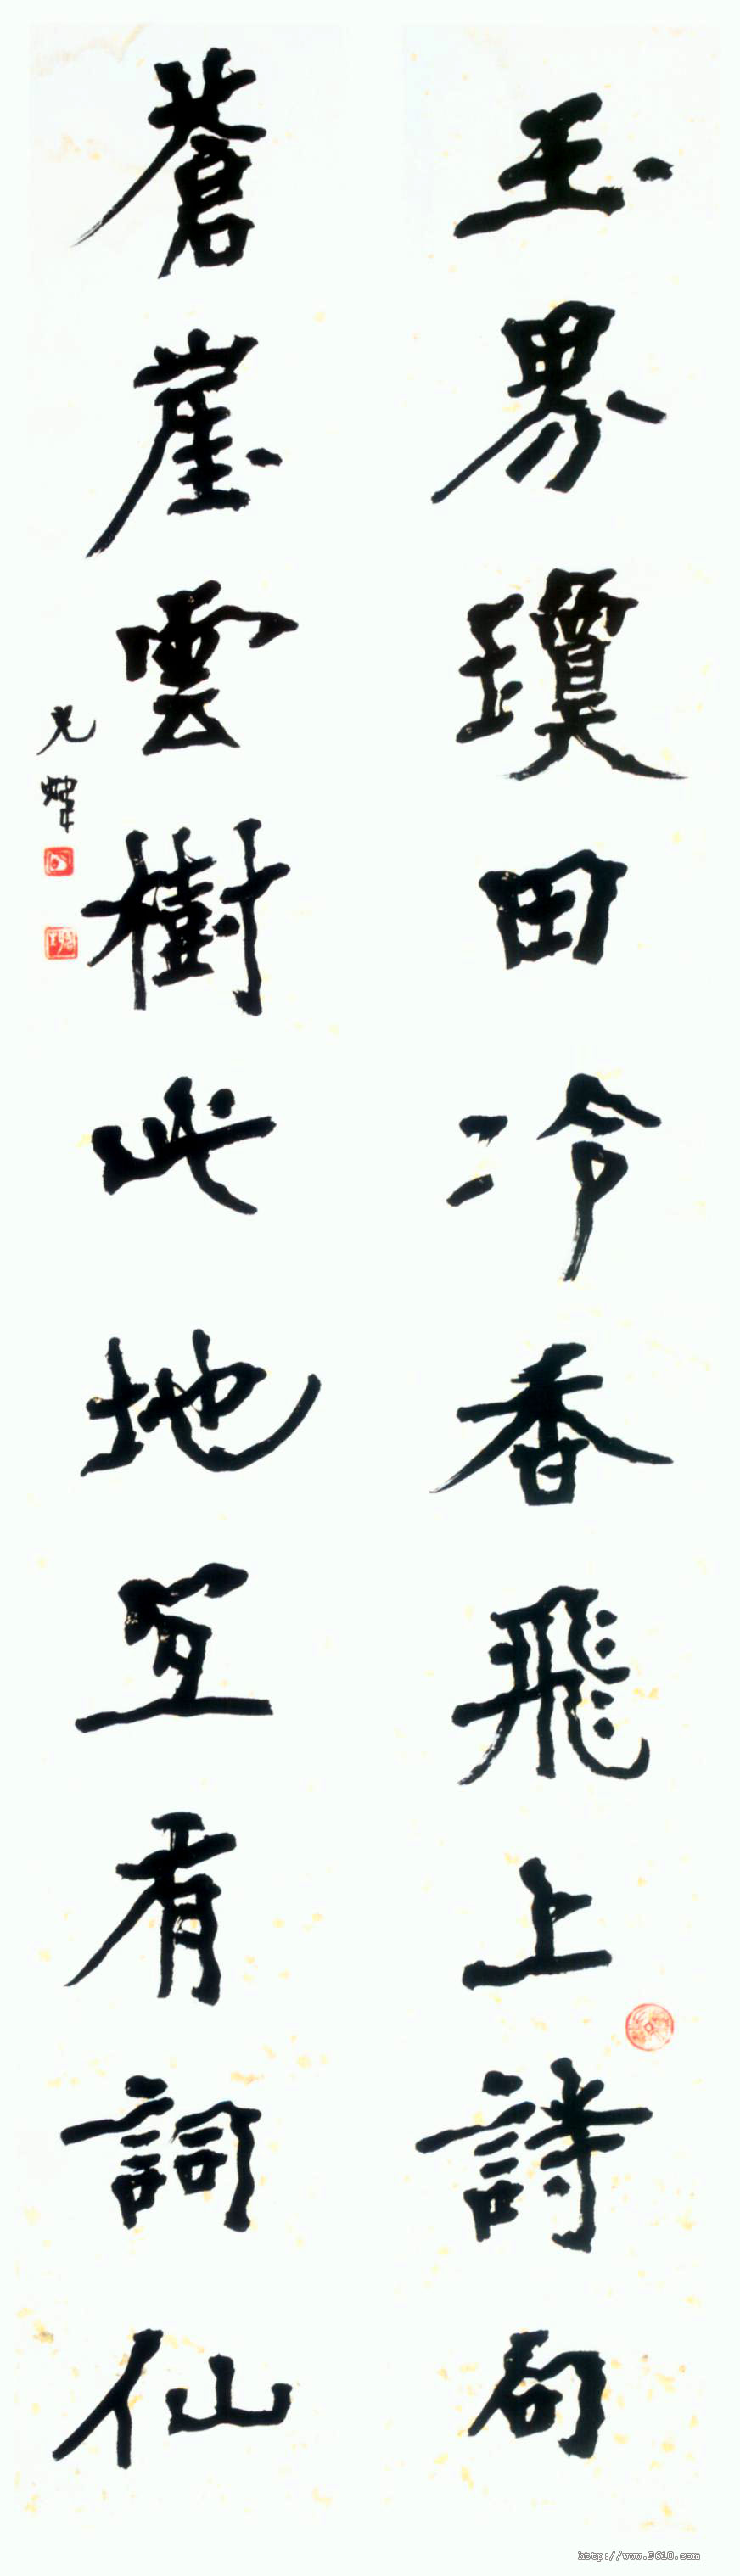 玉界瓊田冷香飛上詩句
蒼崖雲樹此地宜有詞仙
光煒
http://www.9610.com